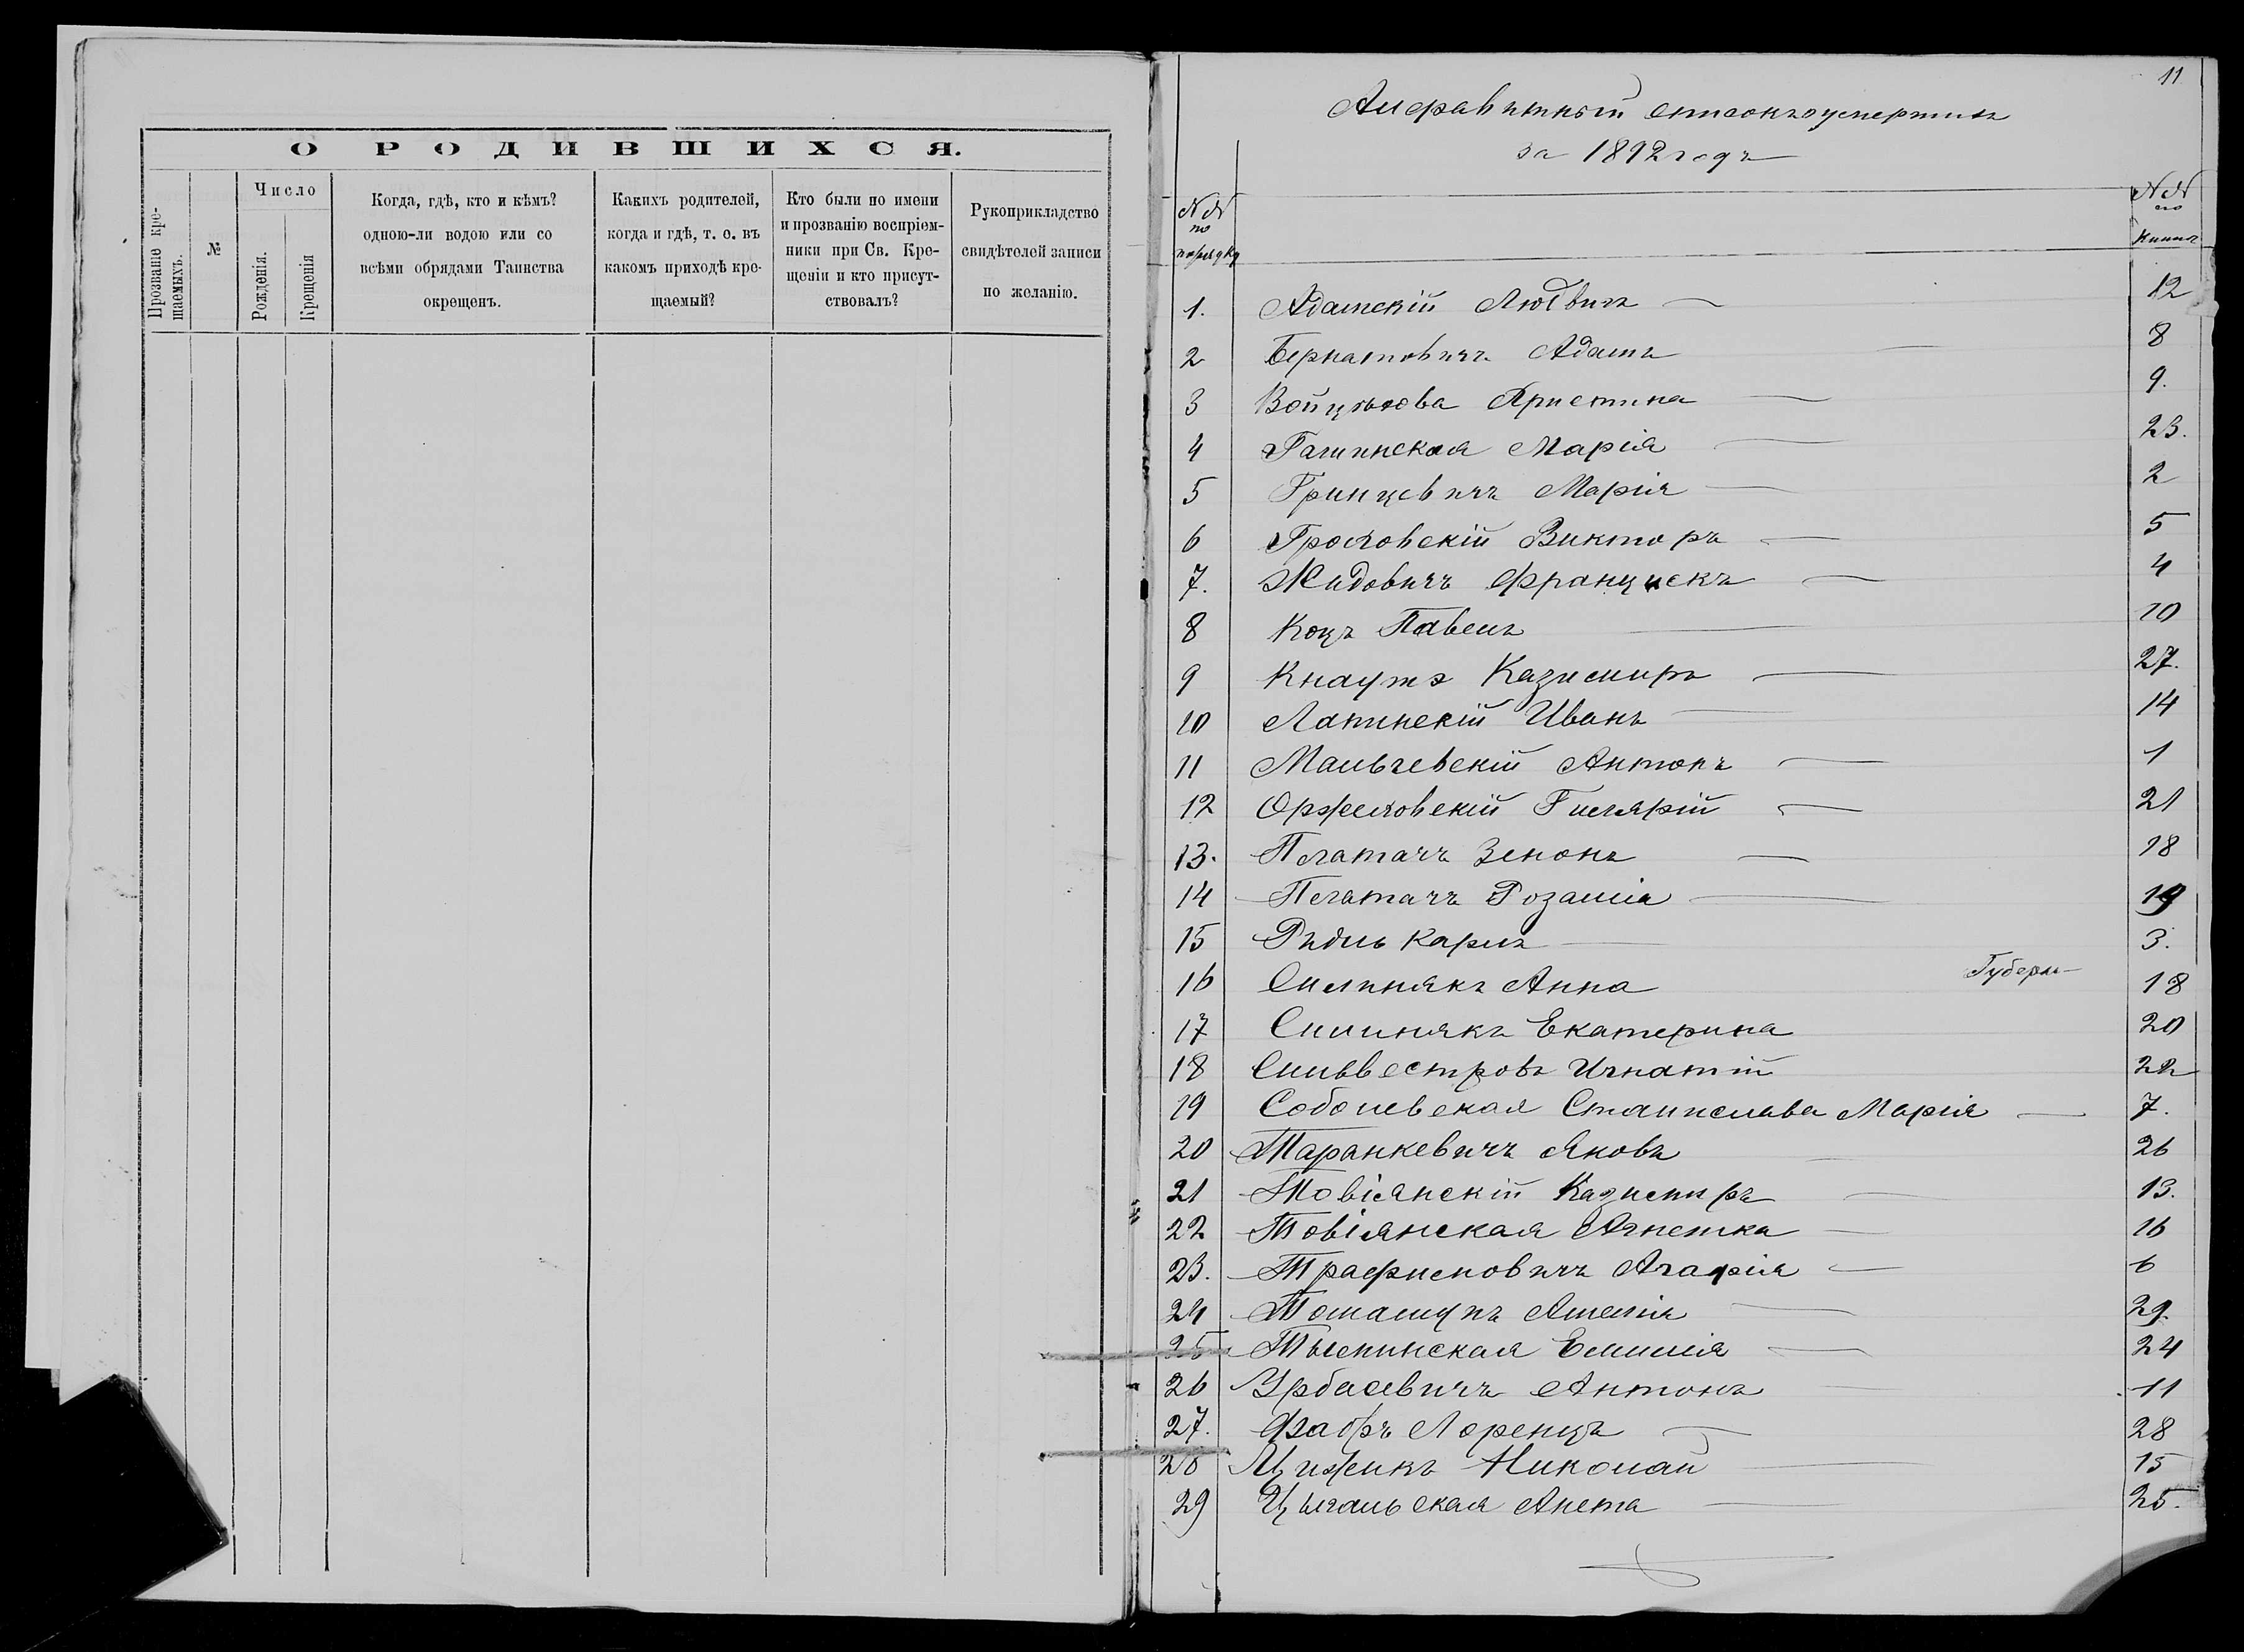 О РОДИВШИХСЯ.
Прозваніе кре-
щаемыхъ.
№
Число
Рожденія.
Крещенія
Когда, гдѣ, кто и кѣмъ?
одною-ли водою или со
всѣми обрядами Таинства
окрещенъ.
Какихъ родителей,
когда и гдѣ, т. е. въ
какомъ приходѣ кре-
щаемый?
Кто были по имени
и прозванію воспріем-
ники при Св. Кре-
щеніи и кто присут-
ствовалъ?
Рукоприкладство
свидѣтелей записи
по желанію.
11
Алфавитный списокъ умершихъ
за 1892 годъ
№№ по порядку
№№ по книгѣ
1. Адамскій Людвигъ 12
2 Бернатовичъ Адамъ 8
3 Войцѣхова Христина 9.
4 Галинская Марія 23.
5 Гринцевичъ Марія 2
6 Гроховскій Викторъ 5
7. Жидовичъ Францискъ 4
8 Коцъ Павелъ 10
9 Кнаутъ Казиміръ 27.
10 Лапинскій Иванъ 14
11 Мальчевскій Антонъ 1
12 Оржеховскій Гилярій 21
13. Зенонъ 18
14 Розалія 19
15 Карлъ 3.
16 Силинякъ Анна Губерн- 18
17 Силинякъ Екатерина 20
18 Сильвестровъ Игнатій 22
19 Соболевская Станислава Марія 7.
20 Таранкевичъ Яковъ 26
21 Товіянскій Казиміръ 13.
22 Товіянская Агнешка 16
23. Трафимовичъ Агафія 6
24 Томашунъ Амелія 29.
25 Емилія 24
26 Урбановичъ Антонъ 11
27. Флоръ Лоренцъ 28
28 Цижикъ Николай 15
29 Цыгальская Анета 25.